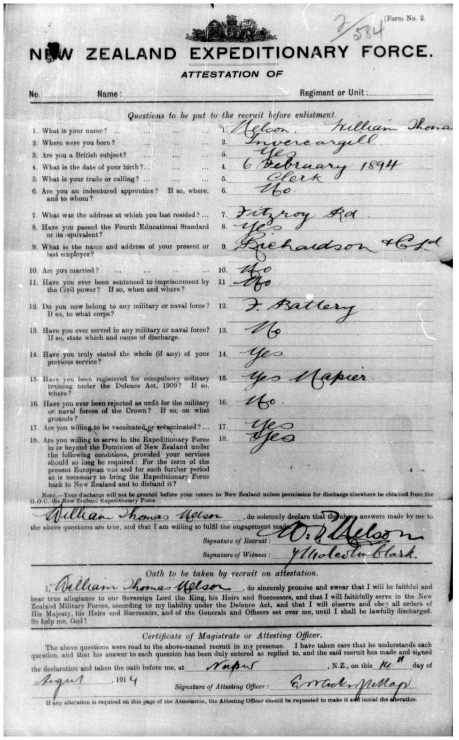 2/584
[Form No. 2.
NEW ZEALAND EXPEDITIONARY FORCE.
ATTESTATION OF
No. Name: Regiment or Unit:
Questions to be put to the recruit before enlistment.
1. What is your name? ... 1. Nelson. William Thomas
2. Where were you born? ... 2. Invercargill
3. Are you a British subject? ... 3. Yes
4. What is the date of your birth? ... 4. 6 February 1894
5. What is your trade or calling? ... 5. Clerk
6. Are you an indentured apprentice? If so, where, 6. No
and to whom?
7. What was the address at which you last resided? ... 7. Fitzroy Rd
8. Have you passed the Fourth Educational Standard 8. Yes
or its equivalent?
9. What is the name and address of your present or 9. Richardson & Co Ld
last employer?
10. Are you married? ... 10. No
11. Have you ever been sentenced to imprisonment by 11. No
the Civil power? If so, when and where?
12. Do you now belong to any military or naval force? 12. F. Battery
If so, to what corps?
13. Have you ever served in any military or naval force? 13. No
If so, state which and cause of discharge.
14. Have you truly stated the whole (if any) of your 14. Yes
previous service?
15. Have you been registered for compulsory military 15. Yes Napier
training under the Defence Act, 1909? If so,
where?
16. Have you ever been rejected as unfit for the military 16. No.
or naval forces of the Crown? If so, on what
grounds?
17. Are you willing to be vaccinated or revaccinated? ... 17. Yes
18. Are you willing to serve in the Expeditionary Force 18. Yes
in or beyond the Dominion of New Zealand under
the following conditions, provided your services
should so long be required: For the term of the
present European war and for such further period
as is necessary to bring the Expeditionary Force
back to New Zealand and to disband it?
NOTE.—Your discharge will not be granted before your return to New Zealand unless permission for discharge elsewhere be obtained from the
G.O.C. the New Zealand Expeditionary Force.
I, William Thomas Nelson, do solemnly declare that the above answers made by me to
the above questions are true, and that I am willing to fulfil the engagement made.
Signature of Recruit: W. T. Nelson
Signature of Witness: Malcolm Clark.
Oath to be taken by recruit on attestation.
I, William Thomas Nelson, do sincerely promise and swear that I will be faithful and
bear true allegiance to our Sovereign Lord the King, his Heirs and Successors, and that I will faithfully serve in the New
Zealand Military Forces, according to my liability under the Defence Act, and that I will observe and obey all orders of
His Majesty, his Heirs and Successors, and of the Generals and Officers set over me, until I shall be lawfully discharged.
So help me, God!
Certificate of Magistrate or Attesting Officer.
The above questions were read to the above-named recruit in my presence. I have taken care that he understands each
question, and that his answer to each question has been duly entered as replied to, and the said recruit has made and signed
the declaration and taken the oath before me, at Napier, N.Z., on this day of
August, 1914
Signature of Attesting Officer:
If any alteration is required on this page of the Attestation, the Attesting Officer should be requested to make it and initial the alteration.